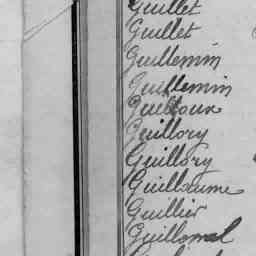 Guillet
Guillet
Guillemin
Guillemin
Guilloux
Guillory
Guillory
Guillaume
Guillier